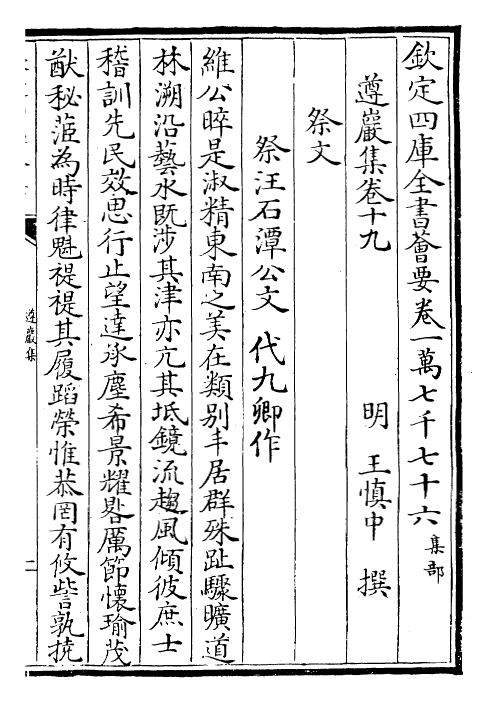 欽定四庫全書薈要卷一萬七千七十六集部
遵巖集卷十九
明 王慎中 撰
祭文
祭汪石潭公文 代九卿作
維公晬是淑精東南之美在類别丰居群殊趾驟曠道
林溯沿藝水既涉其津亦亢其坻鏡流趨風傾彼庶士
稽訓先民效思行止望達承塵希景耀晷厲節懷瑜茂
猷秘蒞為時律魁禔禔其履蹈榮惟恭罔有攸訾孰撓
遵巖集
二